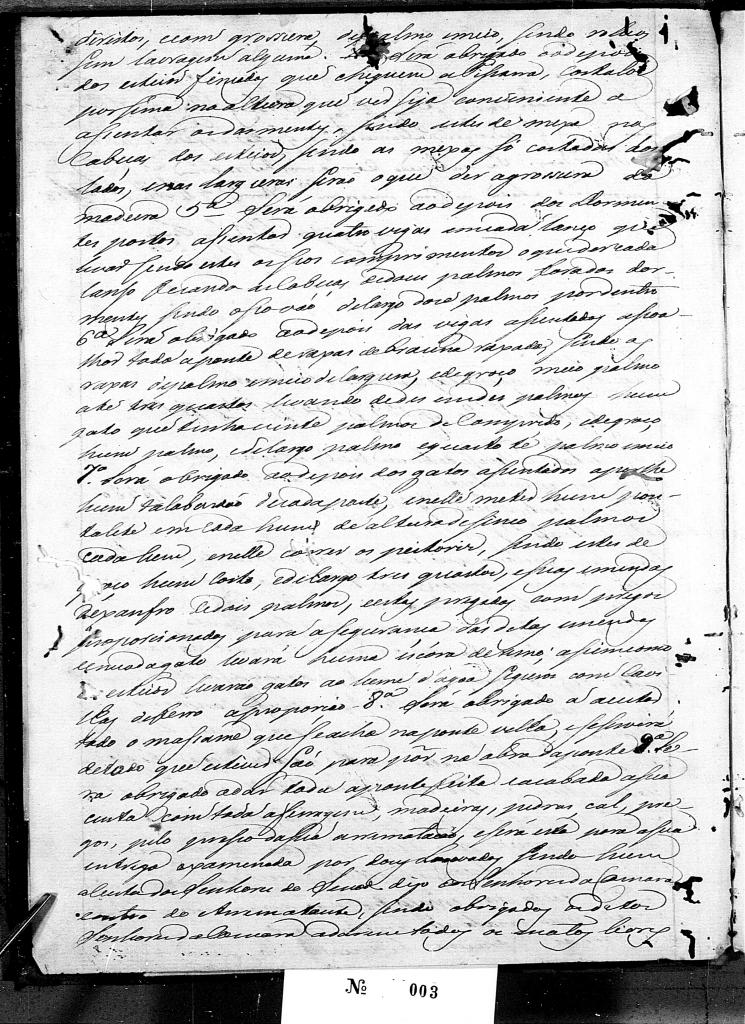 direitos, e com grossura de palmo e meio, sendo roliços
sem lavragem alguma. Será obrigado ao depois
dos esteios fincados que cheguem a Pisarra, cortalos
por sima na altura que veo seja conveniente a
asentar os dormentes, sendo estes de mexa nas
Cabeças dos esteios, sendo as mexas só cortadas dos
lados, e nas larguras serão o que der a grossura da
madeira 5ª Será obrigado ao depois dos Dormen-
tes postos asentar quatro vigas em cada lanço que
levar sendo estes os seos comprimentos o que der cada
lanso ficando de cabeças de dous palmos forados dor-
mentes sendo o seo váo de largo doze palmos por dentro
6ª Será obrigado ao depois das vigas asentadas asoa-
lhar toda a ponte de rapas de Brauna rapadas, sendo as
rapas de palmo e meio de largura, e de groço meio palmo
até tres quartos levando de des em des palmos hum
gato que tenha vinte palmos de Comprido, e de groço
hum palmo, e de largo palmo e quarto té palmo e meio
7ª Será obrigado ao depois dos gatos asentados
hum talabardão de cada parte, e nelle meter hum pon-
talete em cada hum de altura de sinco palmos
cada hum, e nelle correr os peitoris, sendo estes de
groço hum Coito, e de largo tres quartos, e suas emendas
de xanfro de dois palmos, e estas pregadas com pregos
proporcionados para a segurança das ditas emendas
e em cada gato levará huma escora de fino; asim como
os esteios levarão gatos ao lume d'agoa seguros com Cavi-
lhas de ferro a proporção 8ª Será obrigado a aceitar
todo o masame que se acha na ponte velha, e se servirá
de todo que estiver são, para pôr na obra da ponte 9ª Se-
ra obrigado a dar toda a ponte feita e acabada a sua
custa com toda a ferragem, madeiras, pedras, cal, pre-
gos, pelo preso da sua arrematação, e será esta para a sua
entrega examinada por dous Louvados sendo hum
eleito dos Senhores do Senado digo dos Senhores da Camara
e outro do Arrematante, sendo obrigados os ditos
Senhores da Camara a darem todos os matos livres
Nº 003